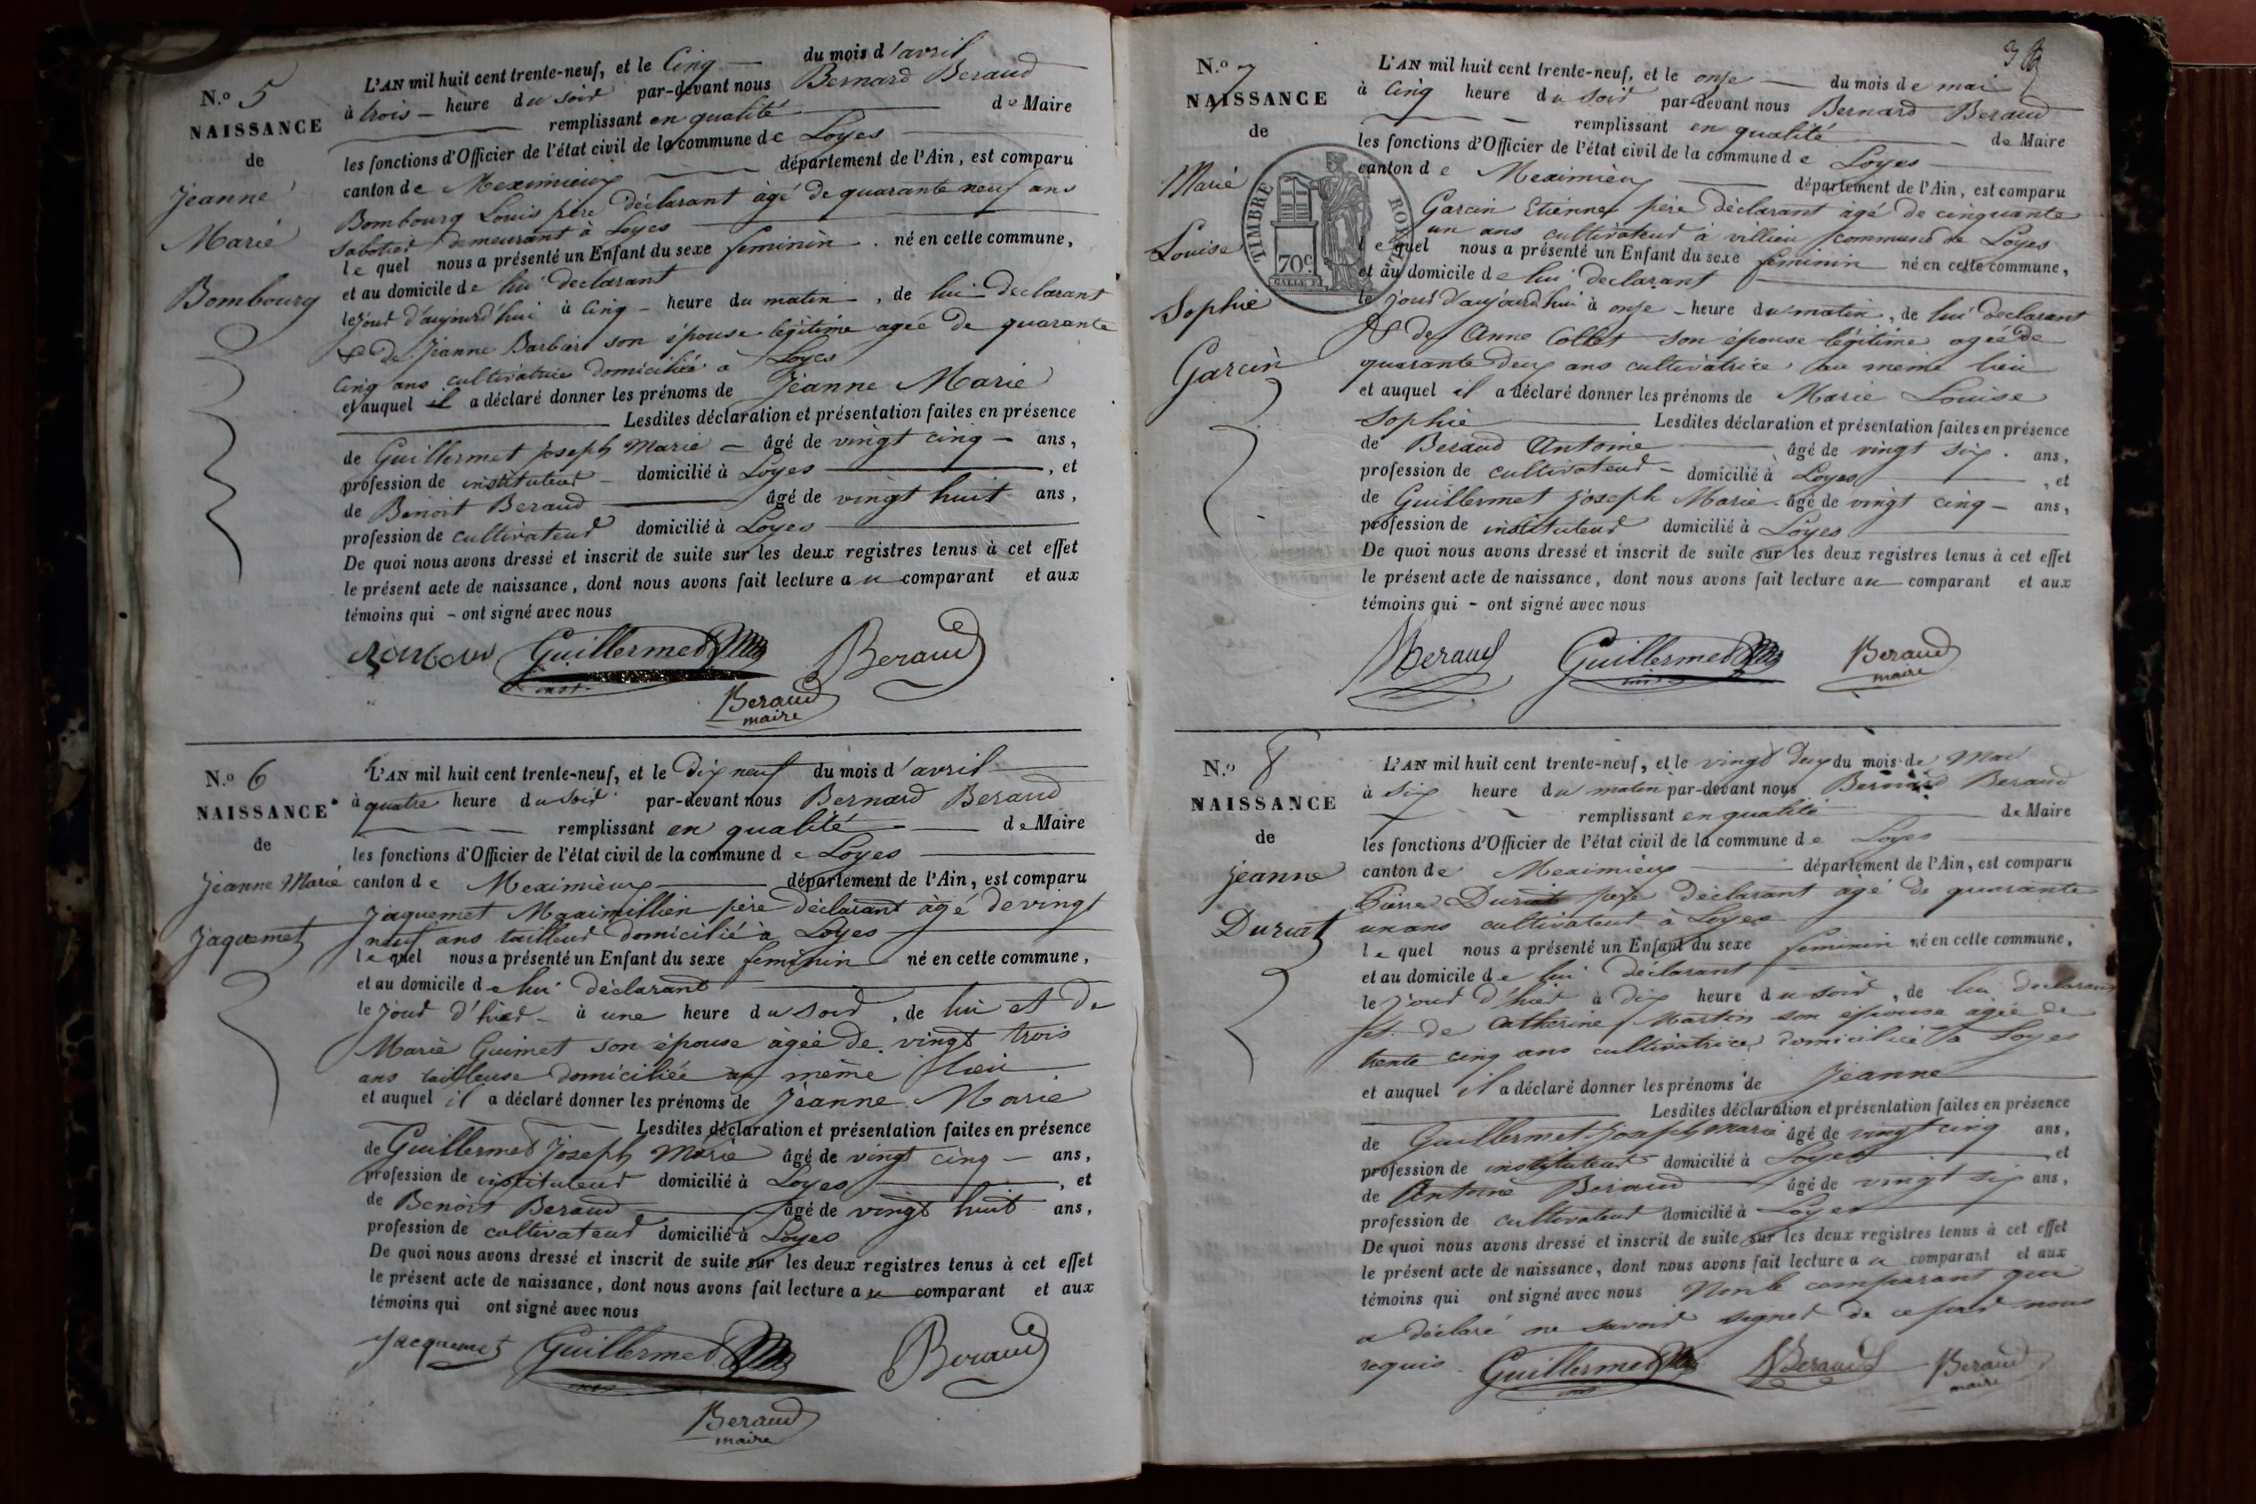 N.o 5
NAISSANCE
de
Jeanne
Marie
Bombourg
L'AN mil huit cent trente-neuf, et le Cinq du mois d'avril
à trois heure du soir par-devant nous Bernard Beraud
remplissant en qualité de Maire
les fonctions d'Officier de l'état civil de la commune de Loyes
canton de Meximieux département de l'Ain, est comparu
Bombourg Louis père déclarant âgé de quarante neuf ans
Sabotier demeurant à Loyes
lequel nous a présenté un Enfant du sexe feminin né en cette commune,
et au domicile de lui declarant
le jour d'aujourd'hui à Cinq heure du matin, de lui declarant
& de Jeanne Barbier son épouse légitime agée de quarante
Cinq ans cultivatrice domiciliée à Loyes
et auquel il a déclaré donner les prénoms de Jeanne Marie
Lesdites déclaration et présentation faites en présence
de Guillermet Joseph Marie âgé de vingt cinq ans,
profession de instituteur domicilié à Loyes, et
de Benoit Beraud âgé de vingt huit ans,
profession de cultivateur domicilié à Loyes
De quoi nous avons dressé et inscrit de suite sur les deux registres tenus à cet effet
le présent acte de naissance, dont nous avons fait lecture au comparant et aux
témoins qui - ont signé avec nous
Guillermet Beraud
Beraud
maire
N.o 6
NAISSANCE
de
Jeanne Marie
Jaquemet
L'AN mil huit cent trente-neuf, et le Dix neuf du mois d'avril
à quatre heure du soir par-devant nous Bernard Beraud
remplissant en qualité de Maire
les fonctions d'Officier de l'état civil de la commune de Loyes
canton de Meximieux département de l'Ain, est comparu
Jaquemet Maximillien père déclarant âgé de vingt
neuf ans tailleur domicilié à Loyes
lequel nous a présenté un Enfant du sexe feminin né en cette commune,
et au domicile de lui déclarant
le jour d'hier à une heure du soir, de lui et de
Marie Guimet son épouse âgée de vingt trois
ans tailleuse domiciliée au même lieu
et auquel il a déclaré donner les prénoms de Jeanne Marie
Lesdites déclaration et présentation faites en présence
de Guillermet Joseph Marie âgé de vingt cinq ans,
profession de instituteur domicilié à Loyes, et
de Benoit Beraud âgé de vingt huit ans,
profession de cultivateur domicilié à Loyes
De quoi nous avons dressé et inscrit de suite sur les deux registres tenus à cet effet
le présent acte de naissance, dont nous avons fait lecture au comparant et aux
témoins qui ont signé avec nous
Jacquemet Guillermet Beraud
Beraud
maire
N.o 7
NAISSANCE
de
Marie
Louise
Sophie
Garcin
TIMBRE ROYAL
70c
L'AN mil huit cent trente-neuf, et le onze du mois de mai
à Cinq heure du soir par-devant nous Bernard Beraud
remplissant en qualité de Maire
les fonctions d'Officier de l'état civil de la commune de Loyes
canton de Meximieux département de l'Ain, est comparu
Garcin Etienne père déclarant âgé de cinquante
un ans cultivateur à villieu commune de Loyes
lequel nous a présenté un Enfant du sexe feminin né en cette commune,
et au domicile de lui declarant
le jour d'aujourd'hui à onze heure du matin, de lui declarant
& de Anne Collet son épouse légitime agée de
quarante deux ans cultivatrice au même lieu
et auquel il a déclaré donner les prénoms de Marie Louise
Sophie Lesdites déclaration et présentation faites en présence
de Beraud Antoine âgé de vingt six ans,
profession de cultivateur domicilié à Loyes, et
de Guillermet Joseph Marie âgé de vingt cinq ans,
profession de instituteur domicilié à Loyes
De quoi nous avons dressé et inscrit de suite sur les deux registres tenus à cet effet
le présent acte de naissance, dont nous avons fait lecture au comparant et aux
témoins qui - ont signé avec nous
Beraud Guillermet Beraud
maire
N.o 8
NAISSANCE
de
Jeanne
Duriat
L'AN mil huit cent trente-neuf, et le vingt deux du mois de Mai
à six heure du matin par-devant nous Bernard Beraud
remplissant en qualité de Maire
les fonctions d'Officier de l'état civil de la commune de Loyes
canton de Meximieux département de l'Ain, est comparu
Pierre Duriat père déclarant agé de quarante
un ans cultivateur à Loyes
lequel nous a présenté un Enfant du sexe feminin né en cette commune,
et au domicile de lui déclarant
le jour d'hier à dix heure du soir, de lui declarant
et de Catherine Martin son épouse agée de
trente cinq ans cultivatrice domiciliée à Loyes
et auquel il a déclaré donner les prénoms de Jeanne
Lesdites déclaration et présentation faites en présence
de Guillermet Joseph Marie âgé de vingt cinq ans,
profession de instituteur domicilié à Loyes, et
de Antoine Beraud âgé de vingt six ans,
profession de cultivateur domicilié à Loyes
De quoi nous avons dressé et inscrit de suite sur les deux registres tenus à cet effet
le présent acte de naissance, dont nous avons fait lecture au comparant et aux
témoins qui ont signé avec nous Non le comparant qui
a déclaré ne savoir signer de ce par nous
requis. Guillermet Beraud Beraud
maire